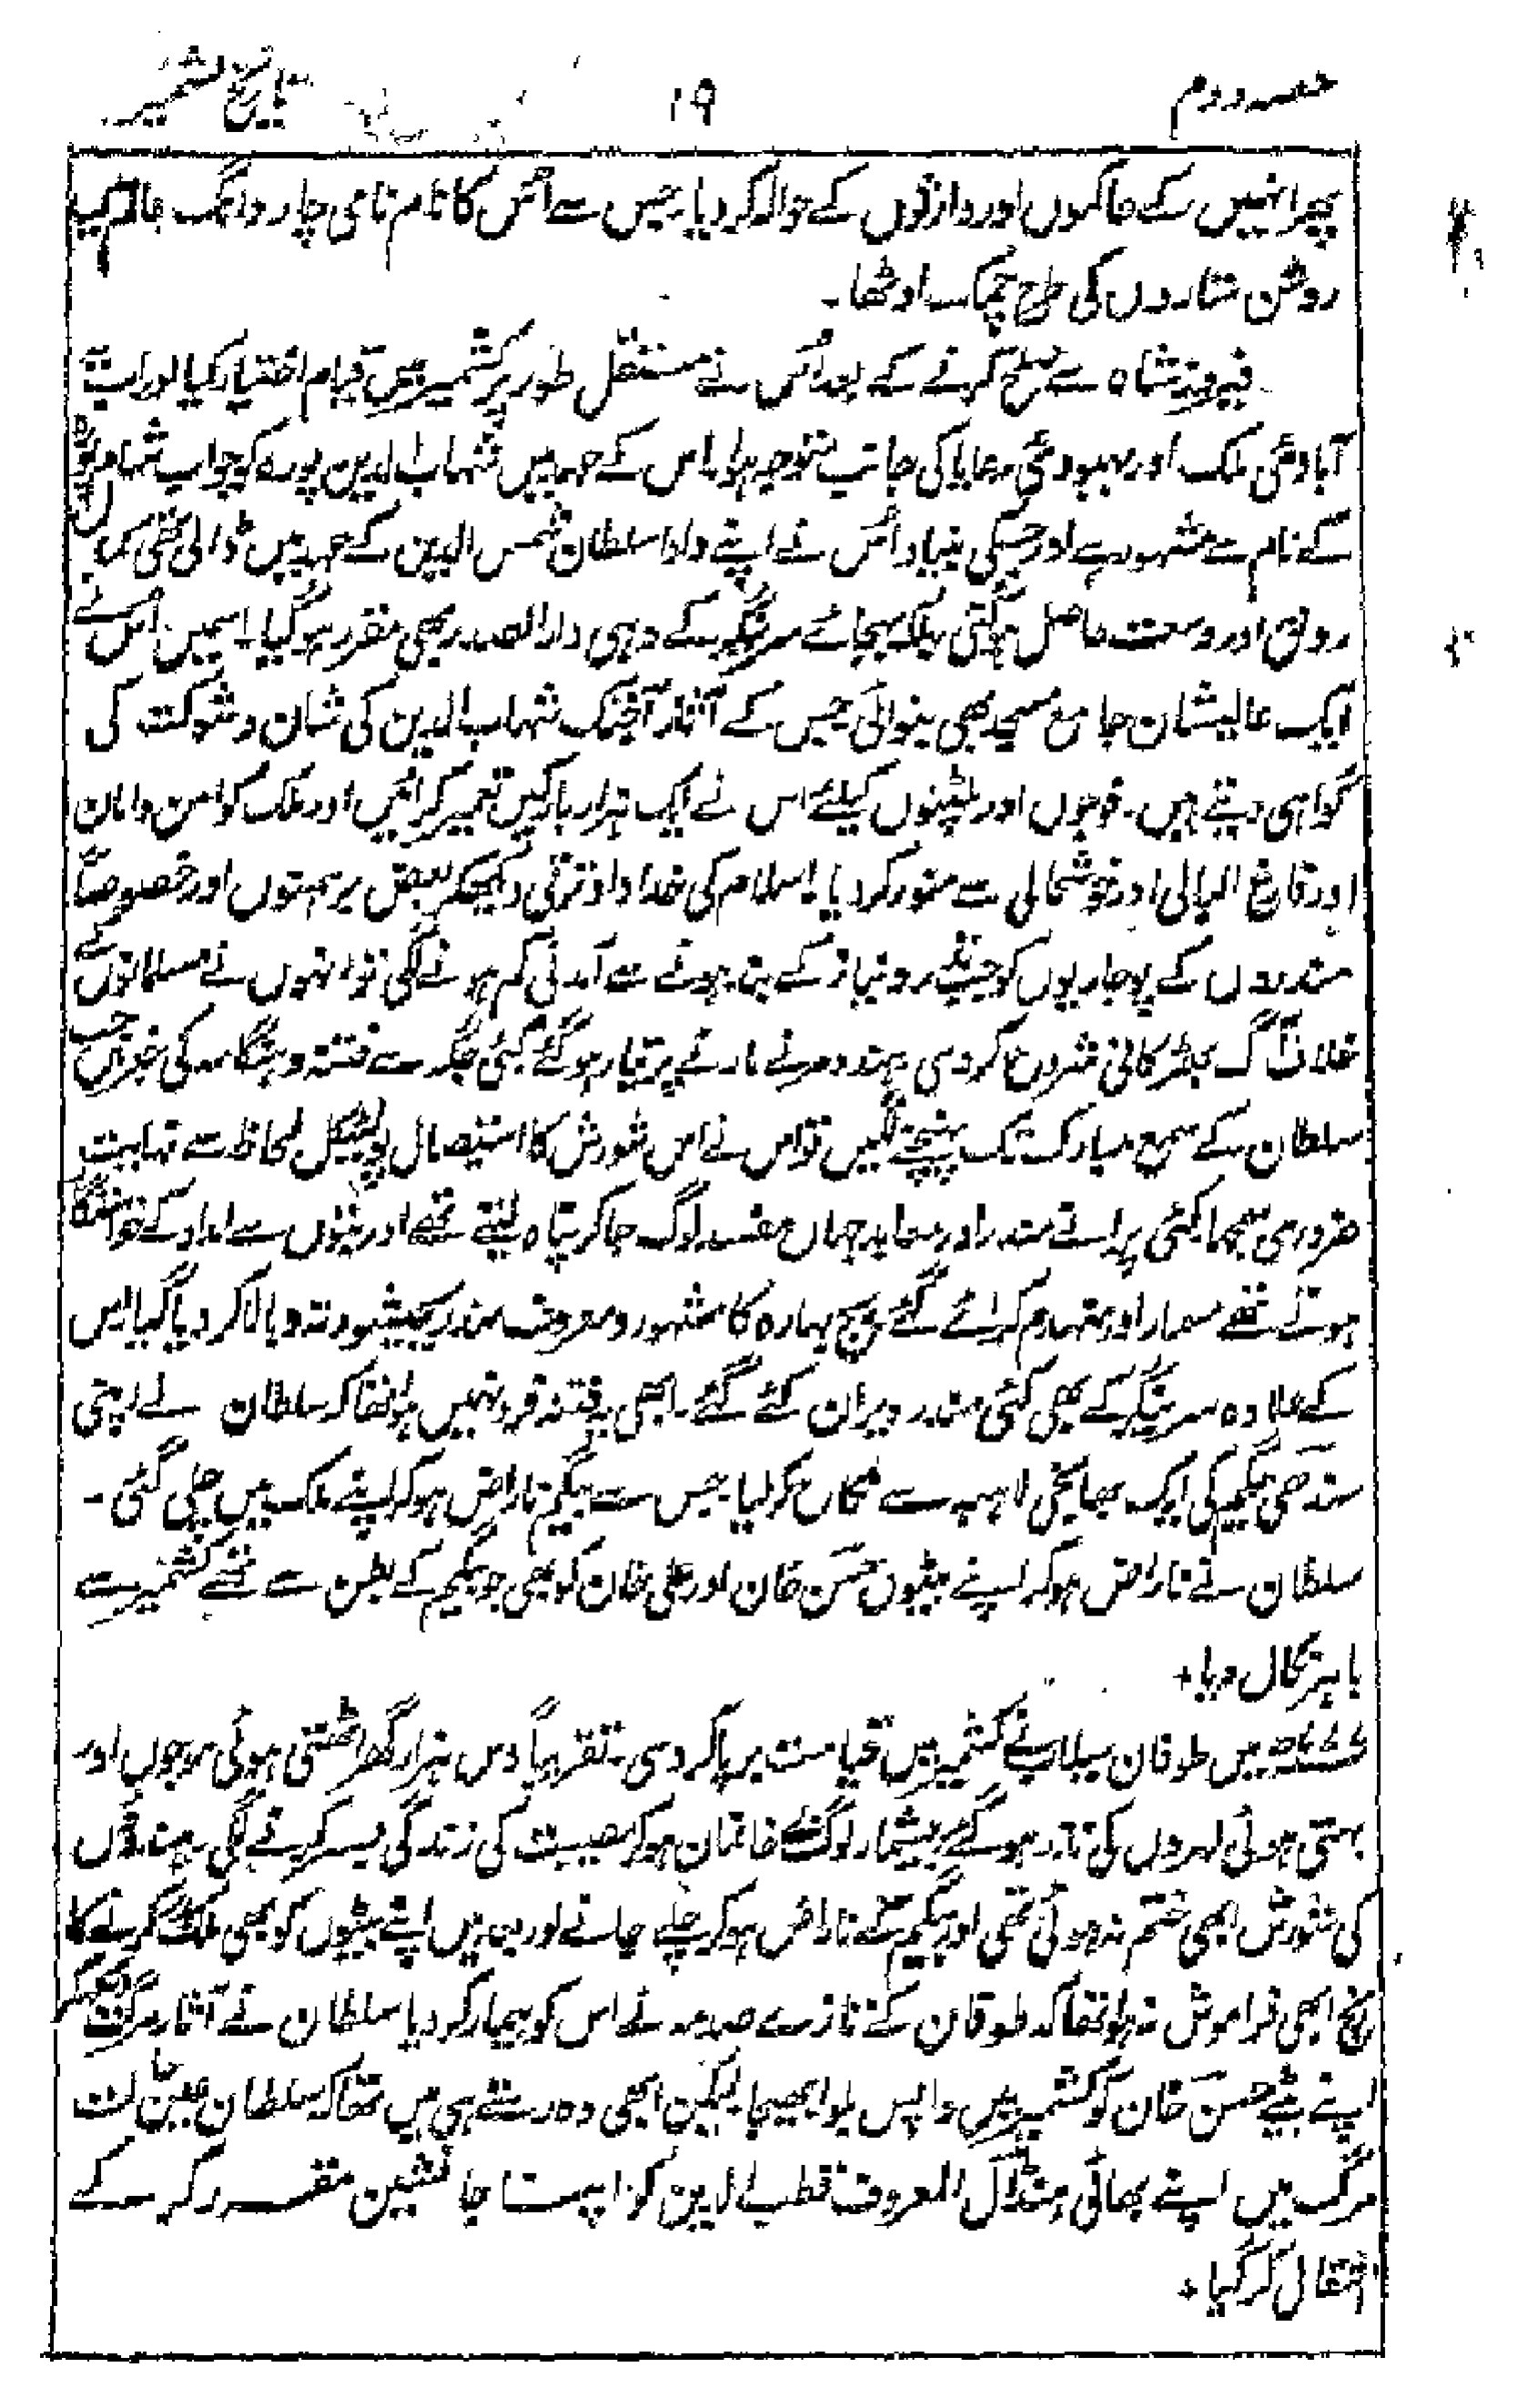 حصہ دوم ۱۹ تاریخ کشمیر
پھر انہیں کے حاکموں اور وارثوں کے حوالہ کر دیا جس سے اُس کا نام نامی چار دانگ عالم میں
روشن ستاروں کی طرح چمک اوٹھا۔
فیروز شاہ سے صلح کرنے کے بعد اُس نے مستقل طور پر کشمیر میں قیام اختیار کیا اور اب
آبادئی ملک اور بہبودئی رعایا کی جانب متوجہ ہوا۔ اس کے عہد میں شہاب الدین پورہ کو جو اب شادی پور
کے نام سے مشہور ہے اور جسکی بنیاد اُس نے اپنے دادا سلطان شمس الدین کے عہد میں ڈالی تھی کمال
رونق اور وسعت حاصل ہو گئی بلکہ بجائے سرینگر کے وہی دارالصدر بھی مقرر ہو گیا۔ اسمیں اُس نے
ایک عالیشان جامع مسجد بھی بنوائی جس کے آثار آجتک شہاب الدین کی شان و شوکت کی
گواہی دیتے ہیں۔ فوجوں اور پلٹنوں کیلئے اس نے ایک ہزار بارکیں تعمیر کرائیں اور ملک کو امن و امان
اور فارغ البالی اور خوشحالی سے منور کر دیا۔ اسلام کی خداداد ترقی دیکھکر بعض برہمنوں اور خصوصاً
مندروں کے پوجاریوں کو جنکے نذر و نیاز کے بند ہونے سے آمدنی کم ہونے لگی تو انہوں نے مسلمانوں کے
خلاف آگ بھڑکانی شروع کر دی ہندو مرنے مارنے پر تیار ہو گئے کئی جگہ سے فتنہ و ہنگامہ کی خبریں جب
سلطان کے سمع مبارک تک پہنچنے لگیں تو اس نے اس شورش کا استیصال پولیٹکل لحاظ سے نہایت
ضروری سمجھا کئی پرانے مندر اور معابد جہاں مفسد لوگ جا کر پناہ لیتے تھے اور بتوں سے امداد کے خواستگار
ہوتے تھے مسمار اور منہدم کرائے گئے بیج بہارہ کا مشہور و معروف مندر بجیشور تہ و بالا کر دیا گیا اس
کے علاوہ سرینگر کے بھی کئی مندر ویران کئے گئے۔ ابھی یہ فتنہ فرو نہیں ہوا تھا کہ سلطان نے اپنی
سندھی بیگم کی ایک بھانجی لاہہ سے نکاح کر لیا جس سے بیگم ناراض ہو کر اپنے ملک میں چلی گئی۔
سلطان نے ناراض ہو کر اپنے بیٹوں حسن خان اور علی خان کو بھی جو بیگم کے بطن سے تھے کشمیر سے
باہر نکال دیا۔
میں طوفان سیلاب نے کشمیر میں قیامت برپا کر دی۔ تقریباً دس ہزار گھر اٹھتی ہوئی موجوں اور
بہتی ہوئی لہروں کی نذر ہو گئے بیشمار لوگ بے خانمان ہو کر مصیبت کی زندگی بسر کرنے لگی۔ ہندوؤں
کی شورش ابھی ختم نہ ہوئی تھی اور بیگم کے ناراض ہو کر چلے جانے اور بعد میں اپنے بیٹوں کو بھی ملک بدر کرنے کا
رنج ابھی فراموش نہ ہوا تھا کہ طوفان کے تازے صدمہ نے اس کو بیمار کر دیا سلطان نے آثار مرگ دیکھکر
اپنے بیٹے حسن خان کو کشمیر میں واپس بلوا بھیجا۔ لیکن ابھی وہ رستے ہی میں تھا کہ سلطان عین حالت
مرگ میں اپنے بھائی ہندال المعروف قطب الدین کو اپنا جانشین مقرر کر کے
انتقال کر گیا۔